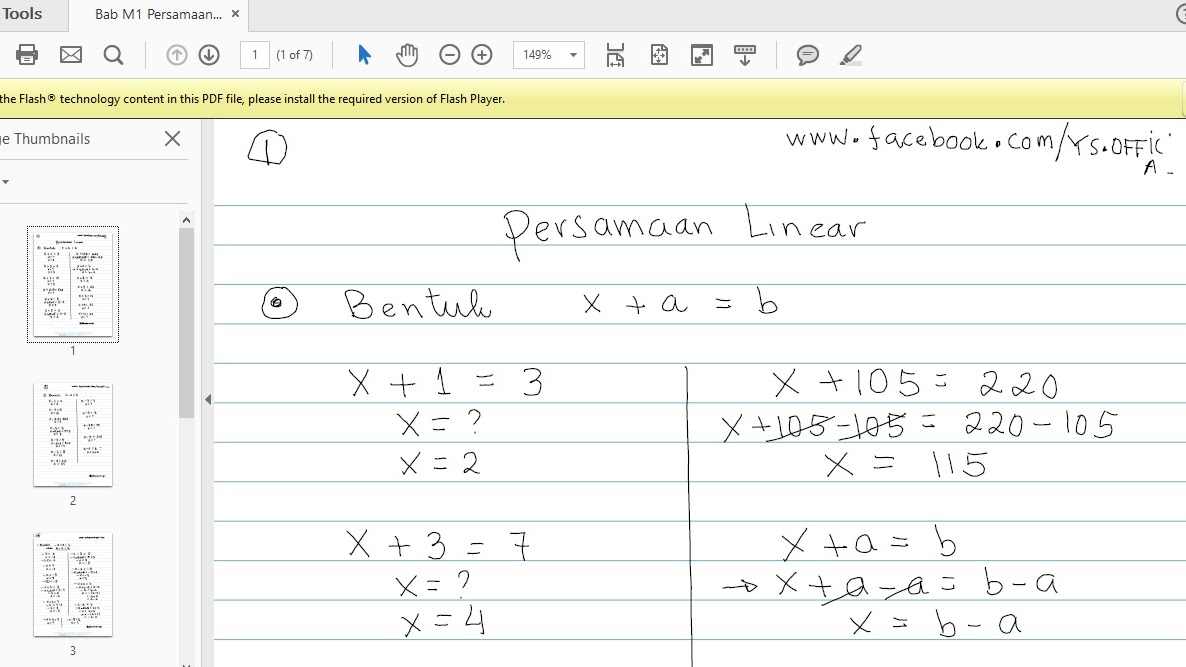 Tools
Bab M1 Persamaan... ×
1 (1 of 7) 149%
the Flash® technology content in this PDF file, please install the required version of Flash Player.
e Thumbnails
1
2
3
1
www.facebook.com/YS.OFFIC
A.
Persamaan Linear
Bentuk x + a = b
x + 1 = 3
x = ?
x = 2
x + 3 = 7
x = ?
x = 4
x + 105 = 220
x + 105 - 105 = 220 - 105
x = 115
x + a = b
→ x + a - a = b - a
x = b - a